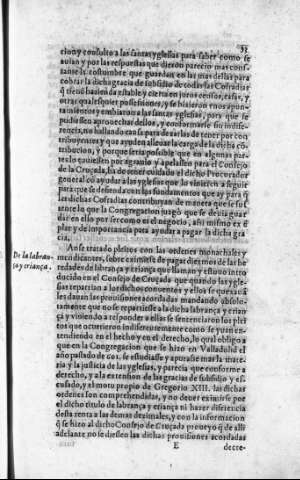 33
cion y consulto a las santas yglesias para saber como se
auian y por las respuestas que dieron parecio mas constante la costumbre que guardan en las mas dellas para
cobrar la dicha gracia de subsidio de todas las Cofradias
q̃ tienẽ hazienda estable y cierta en juros censos, casas, y
otras qualesquier possessiones, y se hizieron unos apuntamientos y embiaron a las santas yglesias, para que se
pudiessen aprouechar dellos, y conformarse sin indiferencia, no hallando causa para dexarlas de tener por contribuyentes y que ayuden a lleuar la carga de la dicha cõtribucion, y porque seria possible que en algunas partes lo quiessen por agrauio y apelassen para el Consejo
de la Cruzada, ha de tener cuidado el dicho Procurador
general de ayudar a las yglesias que le vinieren a seguir
para que se desiendan en los fundamentos que ay para q̃
las dichas Cofradias contribuyan de manera que se sustente lo que la Congregacion juzgò que se deuia guardar en ello por ser como es el negocio, assi mismo exẽplar y de importancia para ayudar a pagar la dicha gracia.
De la labrança y criança.
Anse tratado pleitos con las ordenes monachales y
mendicantes, sobre eximirse de pagar diezmos de las heredades de labrança y criança que llaman y estuuo introducido en el Consejo de Cruzada que quando las yglesias repartian a los dichos conuentos y ellos se quexauã
les dauan las prouisiones acordadas mandando absolutamente que no se repartiesse a la dicha labrança y criança y viniendo a responder a ellas se sentenciaron los pleytos que ocurrieron indiferentemente como se yuan entendiendo en el hecho y en el derecho, lo qual obligo a
que en la Congregacion que se hizo en Valladolid el
año passado de 601. se estudiasse y apurasse mas la materia y la justicia de las yglesias, y parecia que conforme a
derecho, y a la extension de las gracias de subsidio y escusado, y el motu proprio de Gregorio XIII. las dichas
ordenes son comprehendidas, y no deuer eximirse por
el dicho titulo de labrança y criança ni hazer diferencia
desta renta a las demas dezimales, y con la informacion
q̃ se hizo al dicho Consejo de Cruzada proueyo q̃ de alli
adelante no se diessen las dichas prouisiones acordadas
E decre-